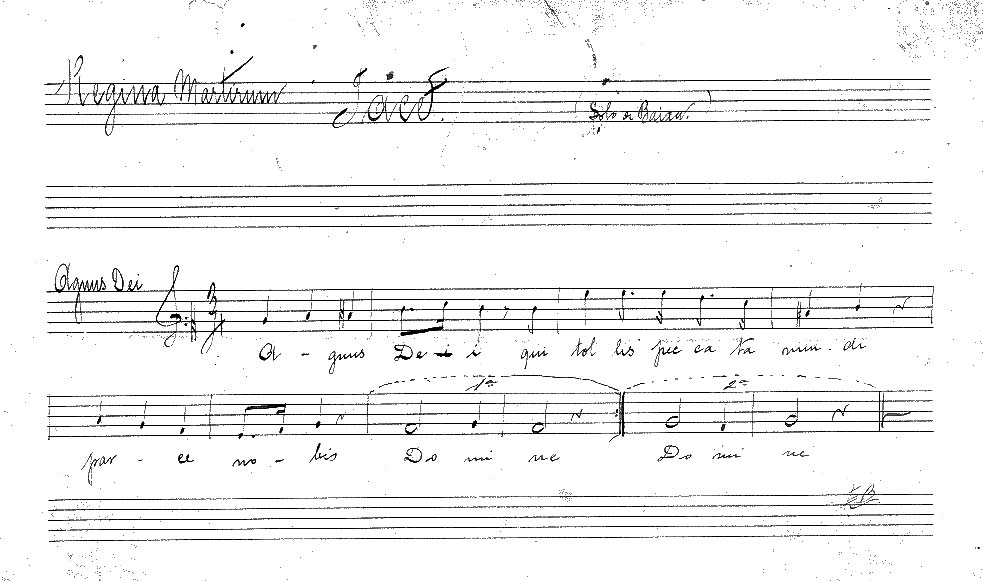 Regina Martirum Tacet. (Solo de Baixo.)
Agnus Dei
3
A - gnus De - i i qui tol lis pec ca ta mun - di
1ª 2ª
par - ce no - bis Do mi ne Do mi ne